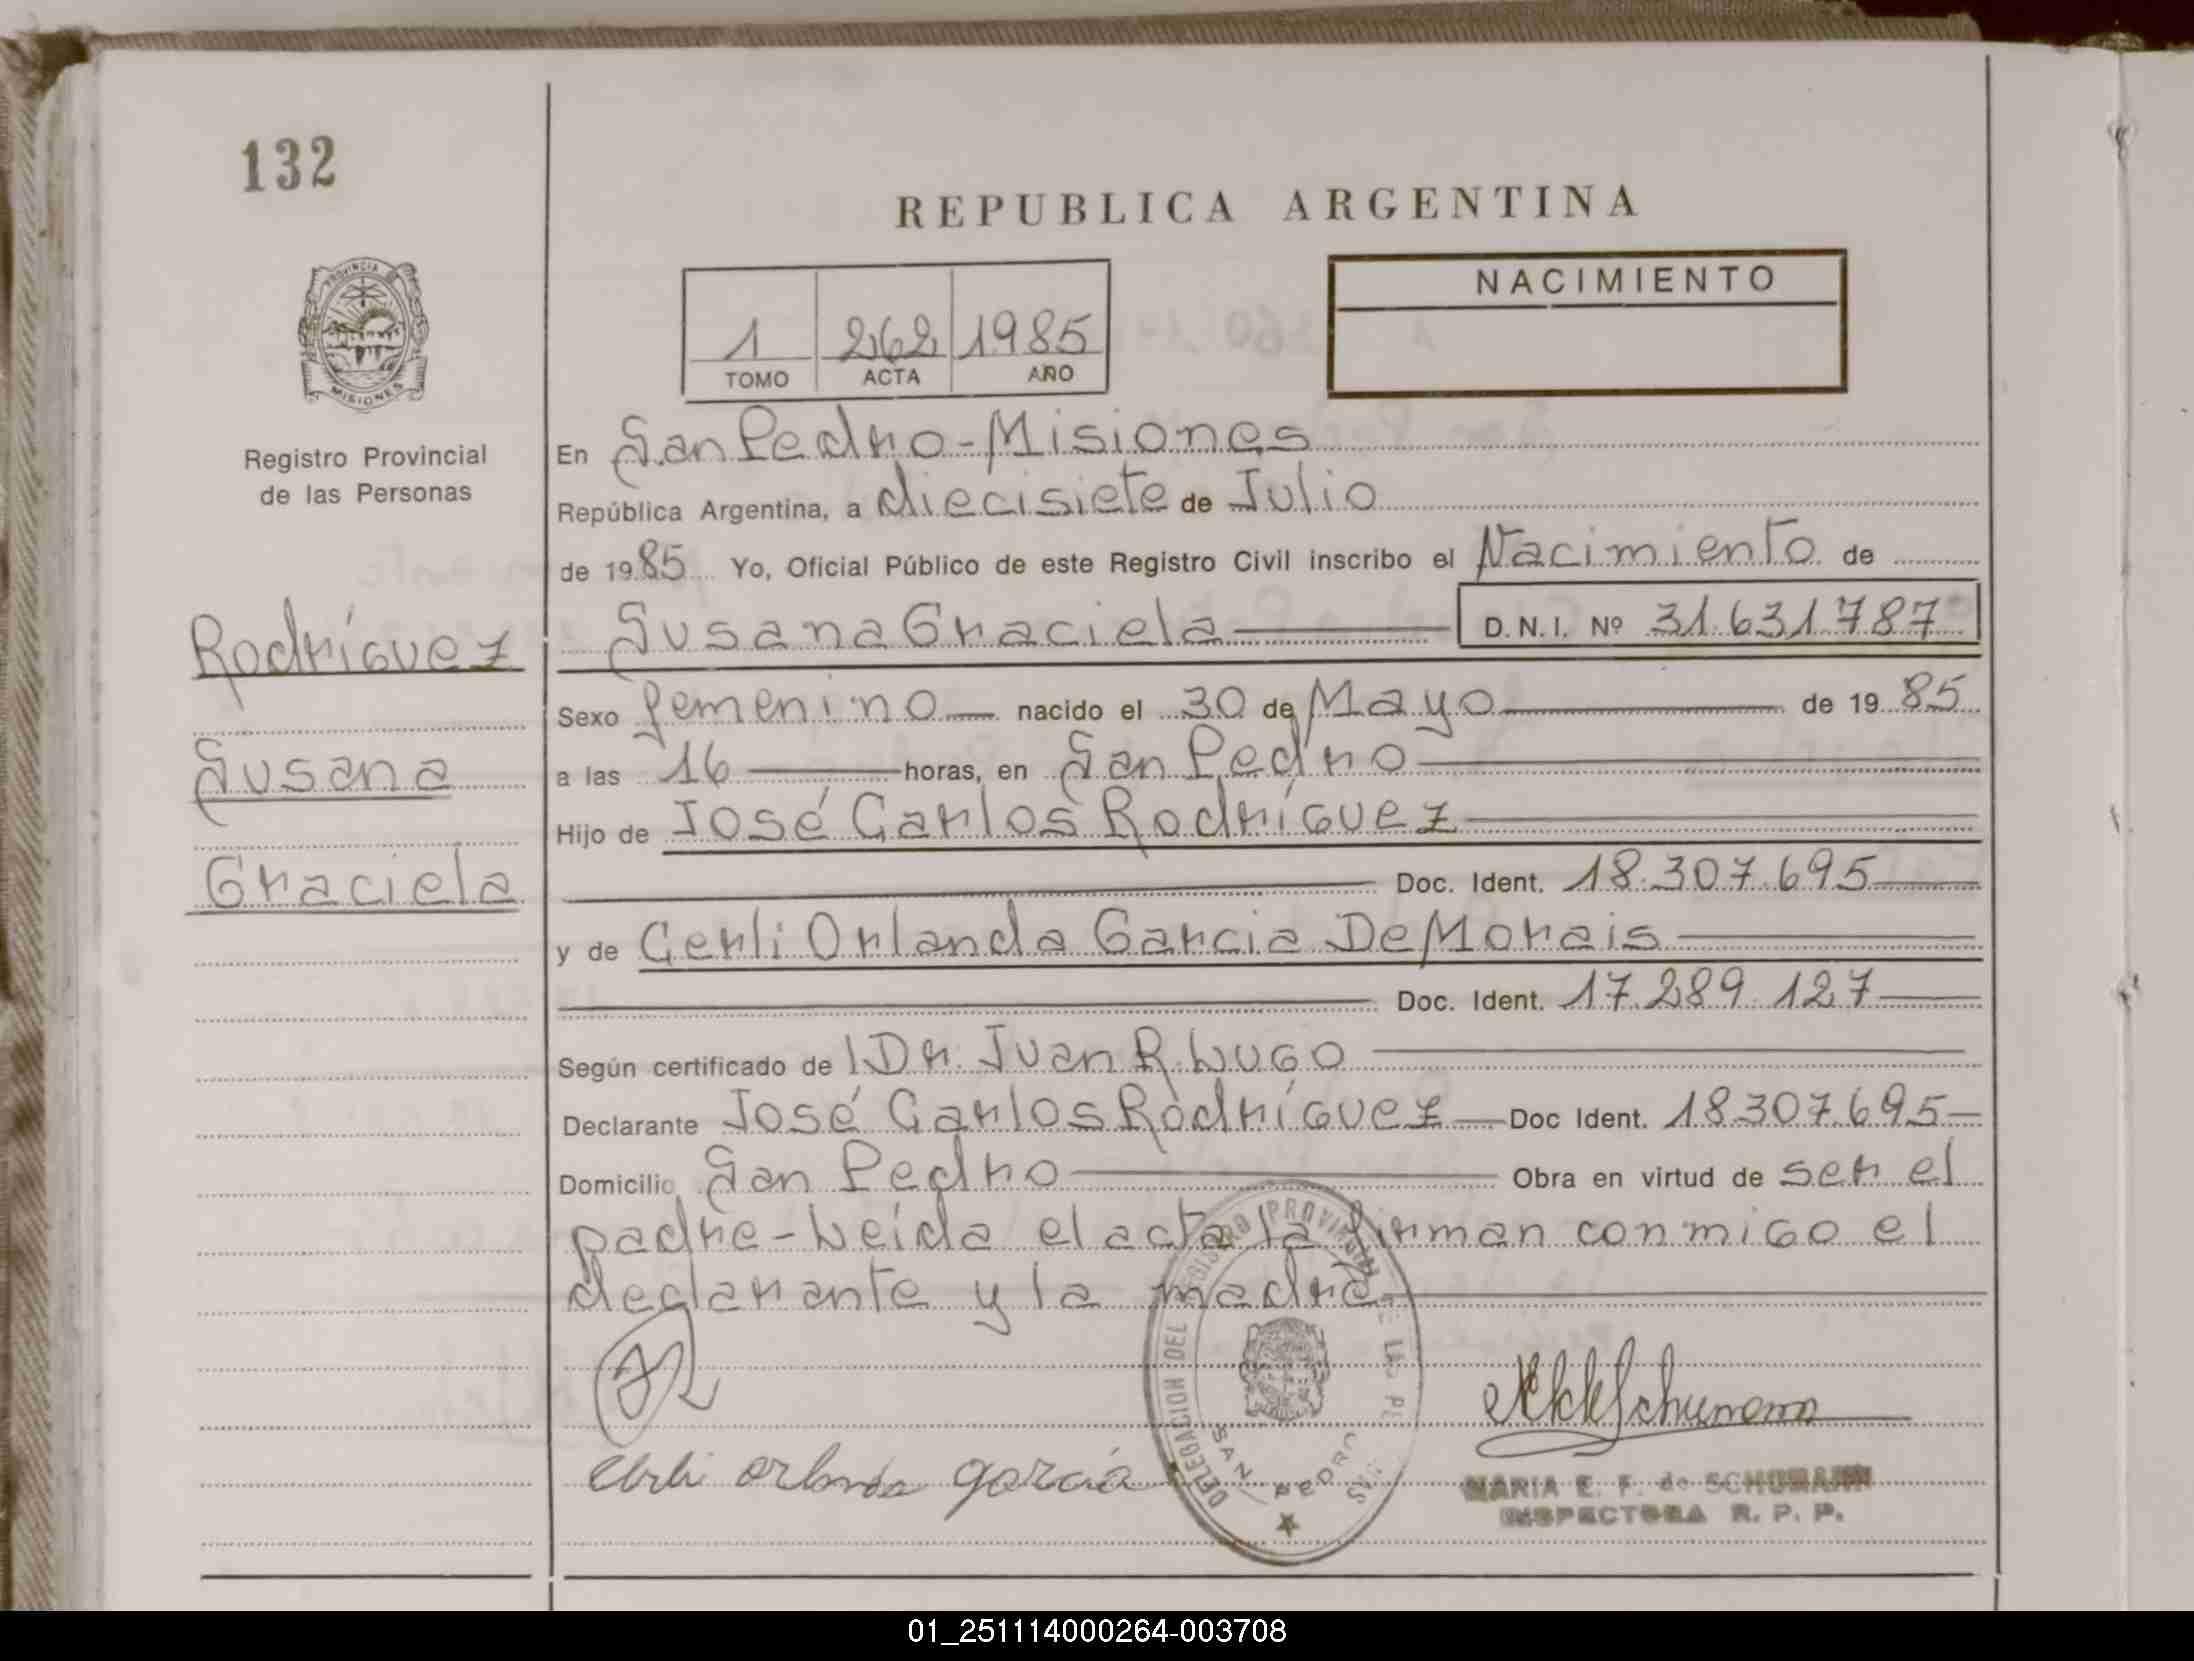 132
REPUBLICA ARGENTINA
PROVINCIA
MISIONES
NACIMIENTO
1 262 1985
TOMO ACTA AÑO
Registro Provincial
de las Personas
En San Pedro - Misiones
República Argentina, a diecisiete de Julio
de 1985 Yo, Oficial Público de este Registro Civil inscribo el Nacimiento de
Rodríguez
Susana Graciela D.N.I. Nº 31.631.787
Sexo femenino nacido el 30 de Mayo de 1985
Susana
a las 16 horas, en San Pedro
Hijo de José Carlos Rodríguez
Graciela
Doc. Ident. 18.307.695
y de Gerli Orlanda Garcia De Morais
Doc. Ident. 17.289.127
Según certificado de Dr. Juan R. Lugo
Declarante José Carlos Rodríguez Doc Ident. 18.307.695
Domicilio San Pedro Obra en virtud de ser el
padre - Leída el acta la firman conmigo el
declarante y la madre.
DELEGACION DEL REGISTRO PROVINCIAL DE LAS PE
SAN PEDRO
garcia
MARIA E. F. de SCHUMANN
INSPECTORA R. P. P.
01_251114000264-003708